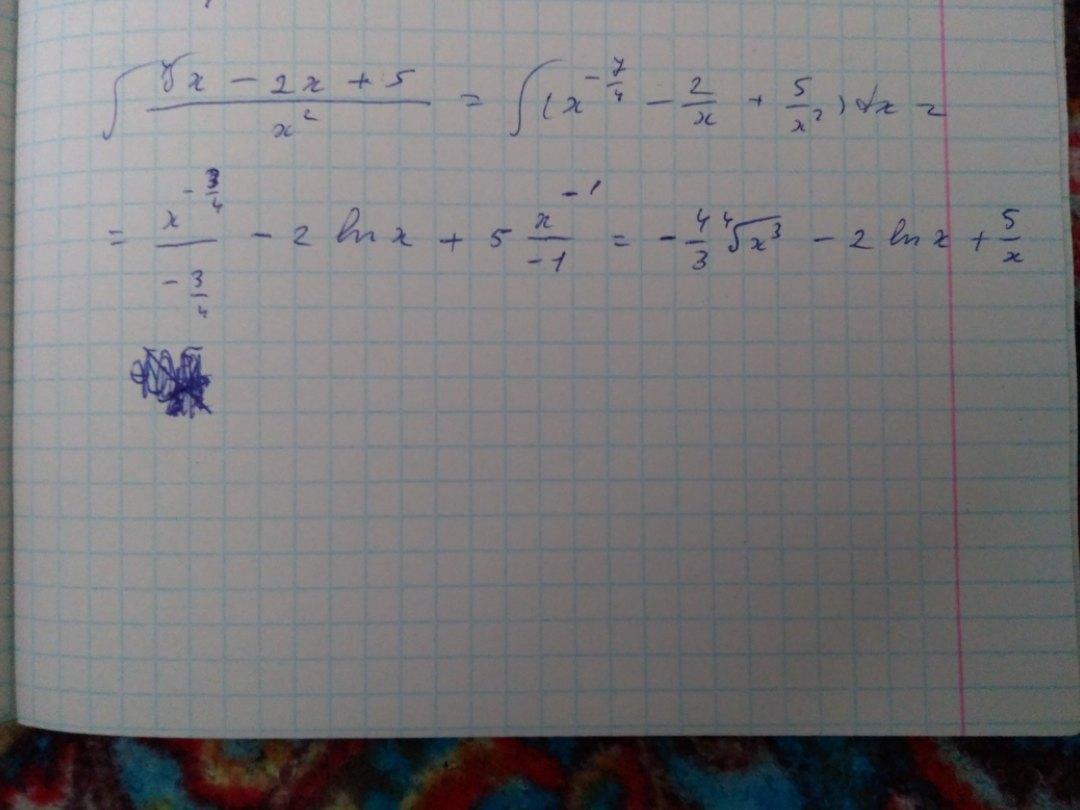 ∫ (∜x − 2x + 5)/x² = ∫ (x^(−7/4) − 2/x + 5/x²) dx =
= x^(−3/4)/(−3/4) − 2 ln x + 5 x^(−1)/(−1) = −4/3 ∜(x³) − 2 ln x + 5/x